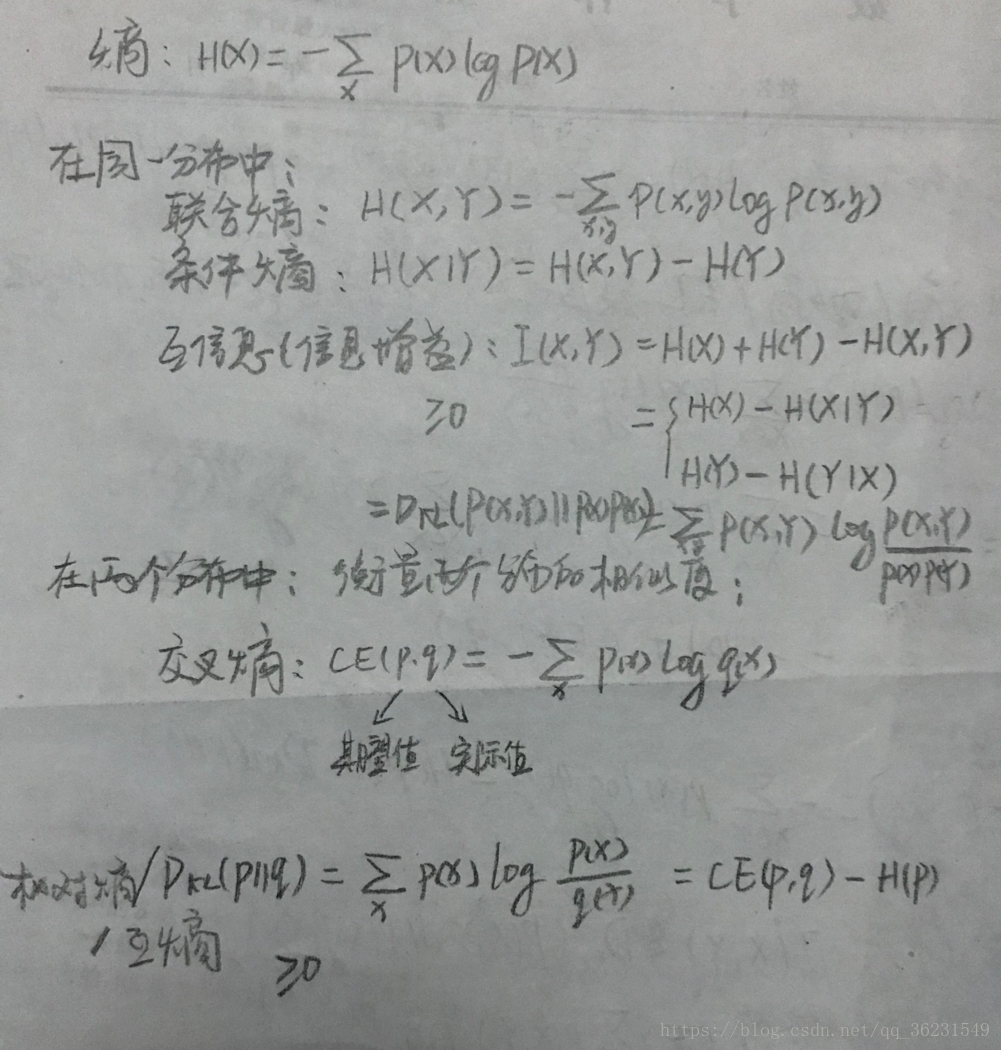 熵: H(X) = -∑_x P(X) log P(X)
在同一分布中:
联合熵: H(X,Y) = -∑_{x,y} P(x,y) log P(x,y)
条件熵: H(X|Y) = H(X,Y) - H(Y)
互信息(信息增益): I(X,Y) = H(X) + H(Y) - H(X,Y)
≥0 = { H(X) - H(X|Y)
H(Y) - H(Y|X)
= D_KL(P(X,Y) || P(X)P(Y)) = ∑ P(X,Y) log P(X,Y) / P(X)P(Y)
在两个分布中: 衡量两个分布的相似度;
交叉熵: CE(p,q) = -∑_x p(x) log q(x)
↙ ↘
期望值 实际值
相对熵/D_KL(p||q) = ∑_x p(x) log p(x)/q(x) = CE(p,q) - H(p)
/互熵 ≥0
https://blog.csdn.net/qq_36231549